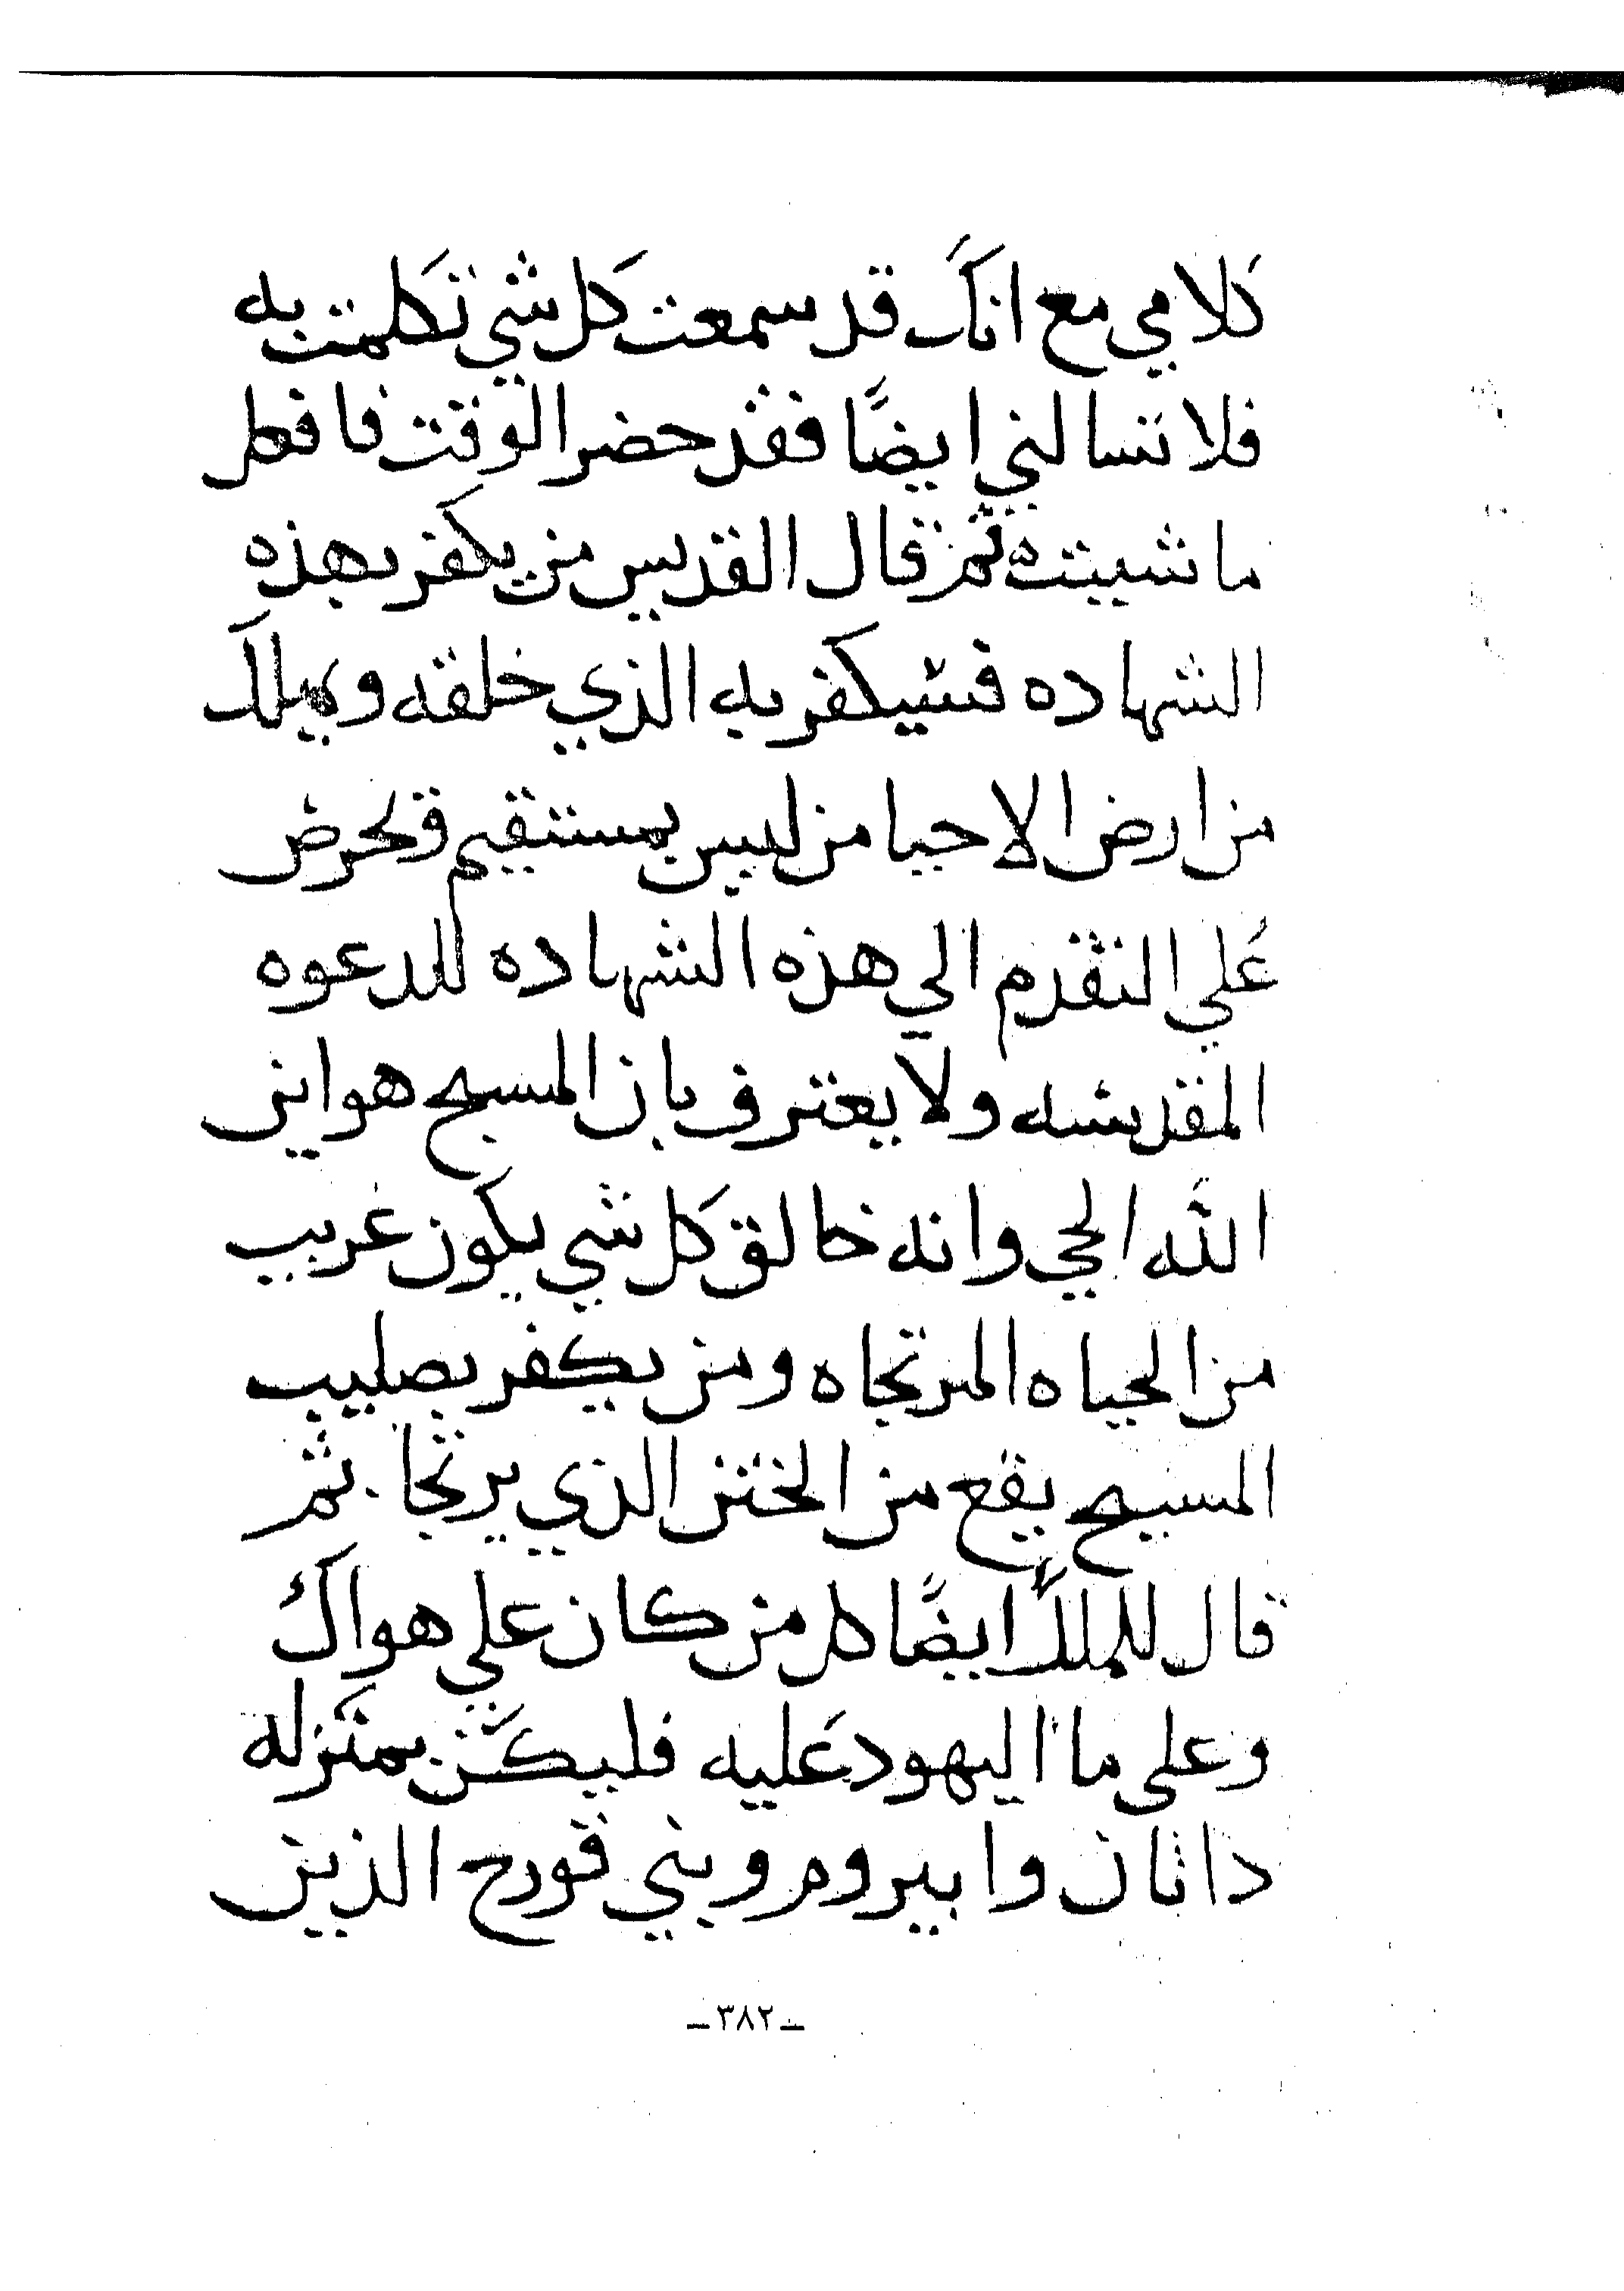 كلامي مع انك قد سمعت كل شي تكلمت به
فلا تسالني ايضًا فقد حضر الوقت فافعل
ما شييت ثم قال القديس من يكفر بهذه
الشهاده فسيكفر به الذي خلقه ويهلك
من ارض الاحيا من ليس بمستقيم ويحرض
علي التقدم الي هذه الشهاده للدعوه
المقدسه ولا يعترف بان المسيح هو ابن
الله الحي وانه خالق كل شي يكون غريب
من الحياه المرتجاه ومن يكفر بصليب
المسيح يقع من الختن الذي يرتجا. ثم
قال للملك ايضًا كل من كان علي هواك
وعلى ما اليهود عليه فليكن بمنزله
داثان وابيروم وبني قورح الذين
ـ ٣٨٢ ـ